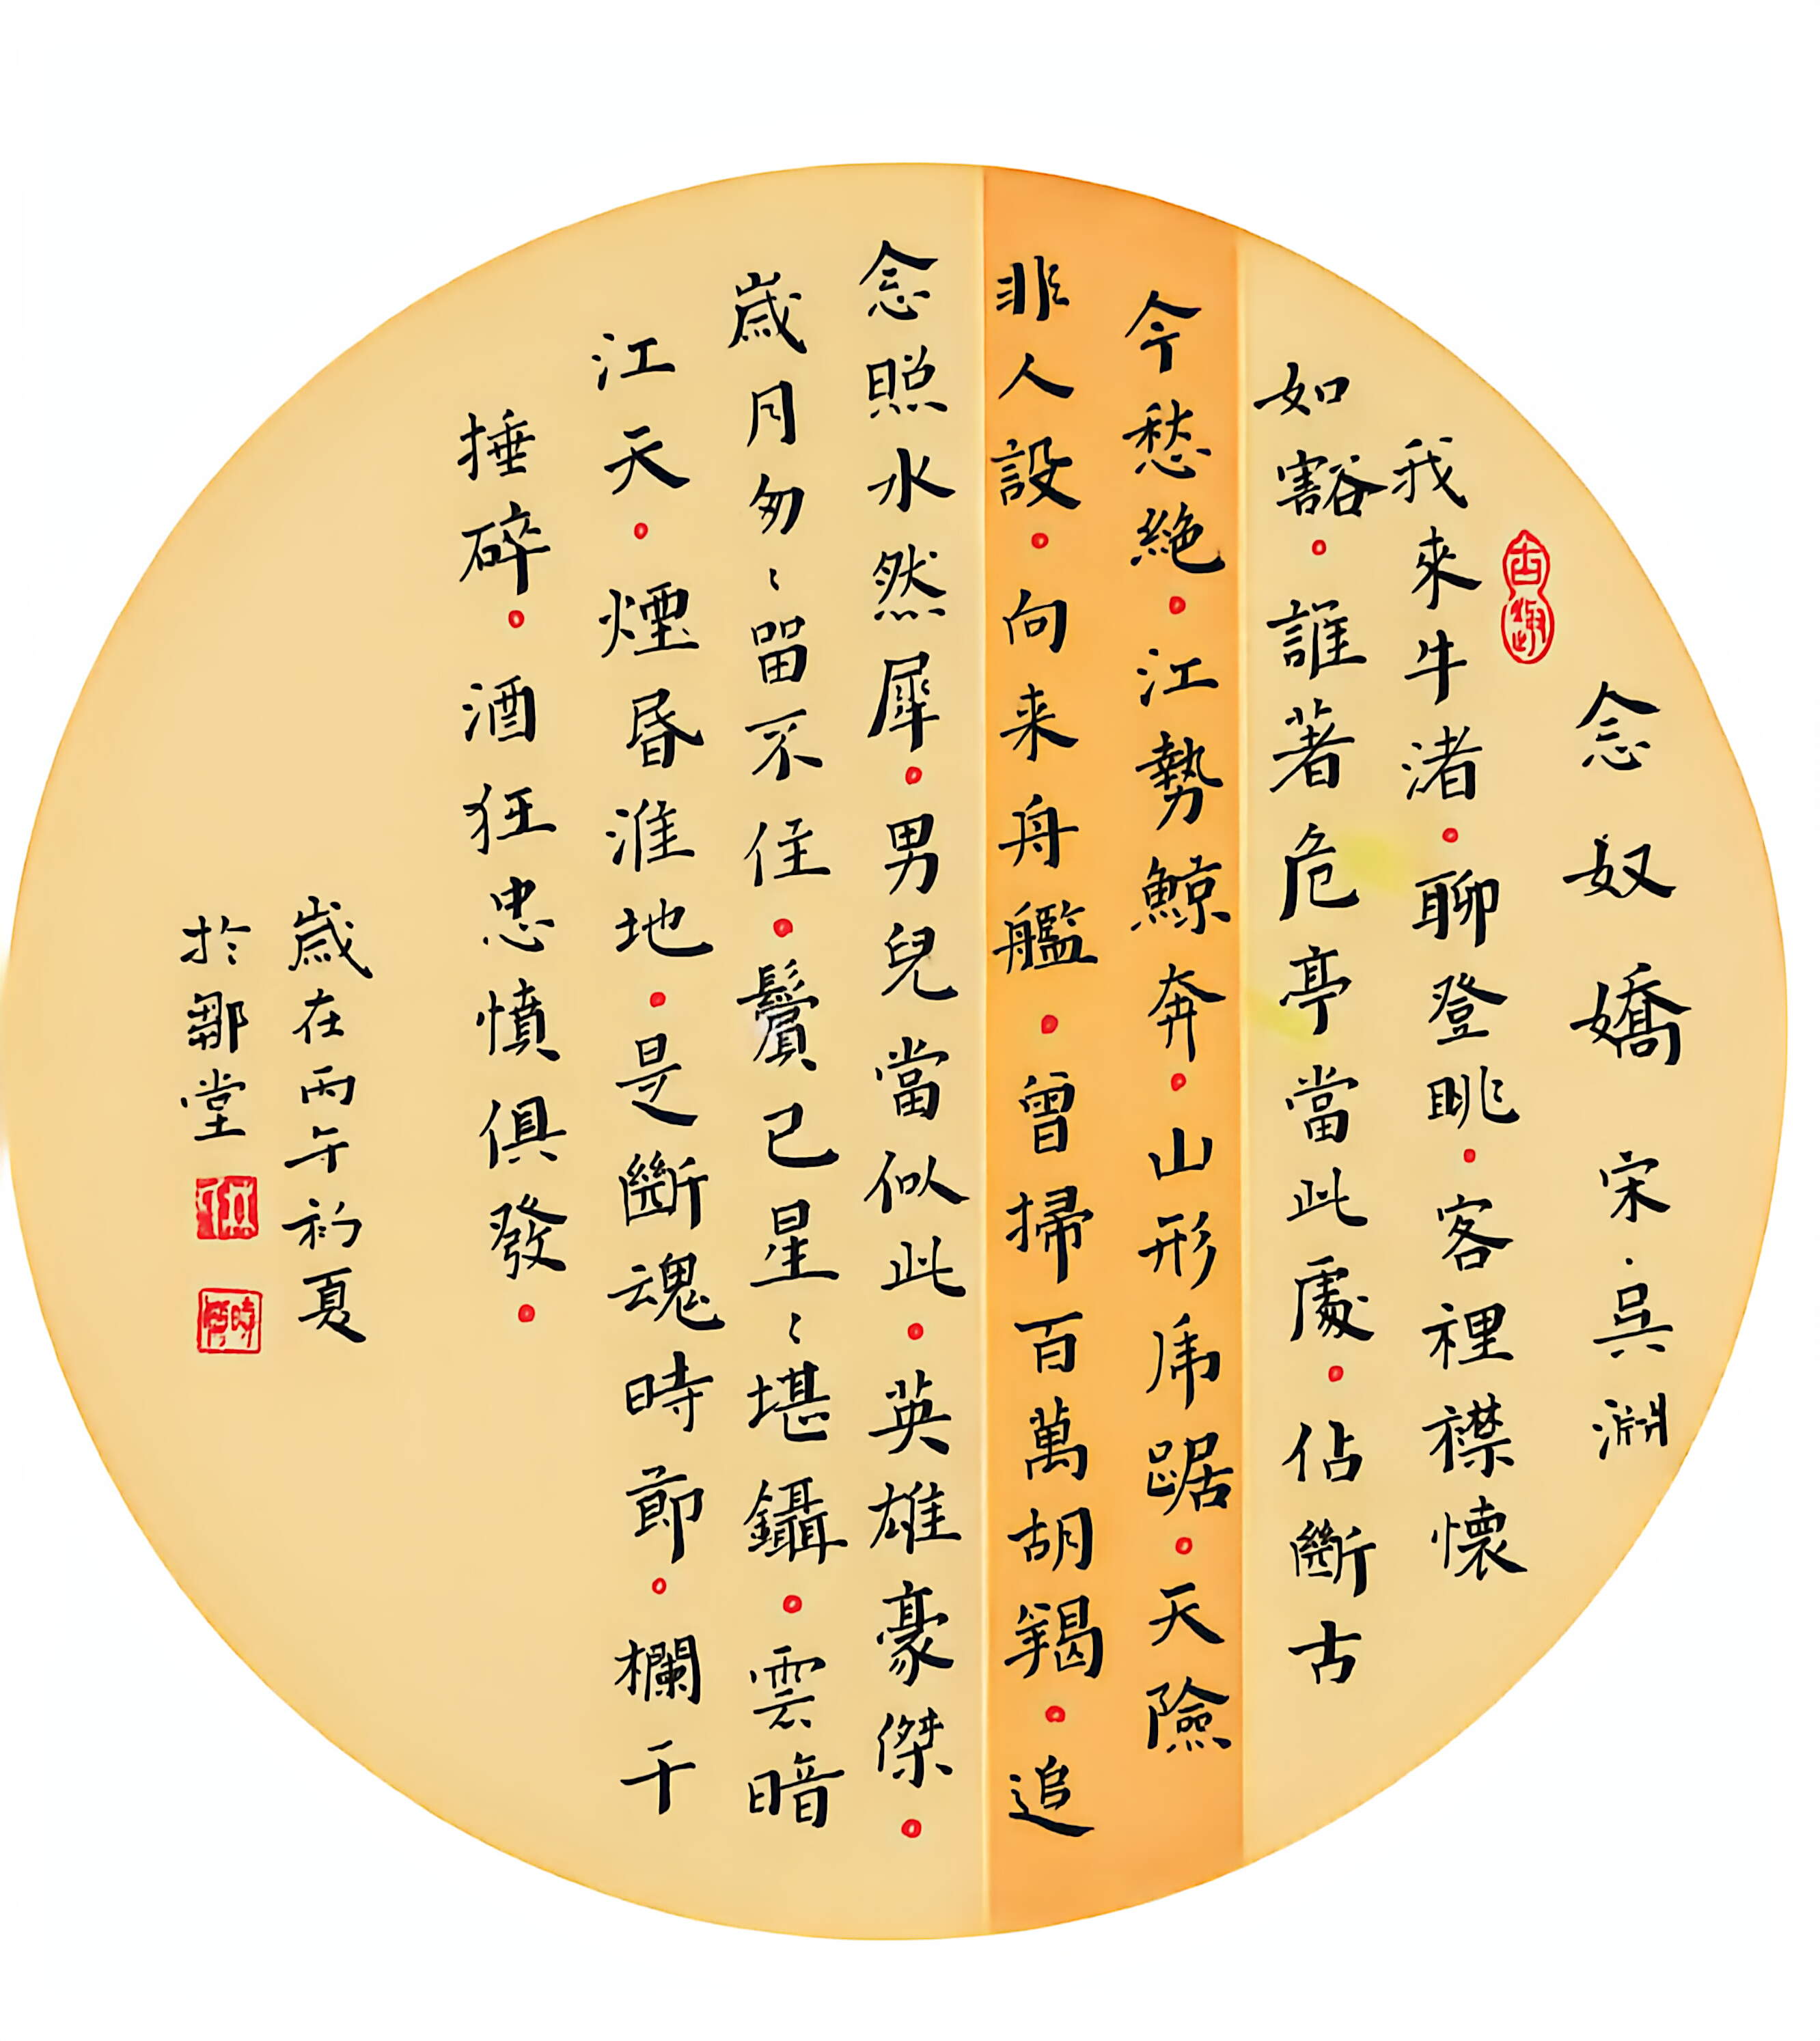 念奴嬌 宋·吳淵
我來牛渚。聊登眺。客裡襟懷
如豁。誰著危亭當此處。佔斷古
今愁絕。江勢鯨奔。山形虎踞。天險
非人設。向来舟艦。曾掃百萬胡羯。追
念照水然犀。男兒當似此。英雄豪傑。
歲月匆〻留不住。鬢已星〻堪鑷。雲暗
江天。煙昏淮地。是斷魂時節。欄干
捶碎。酒狂忠憤俱發。
歲在丙午初夏
於鄒堂
古趣